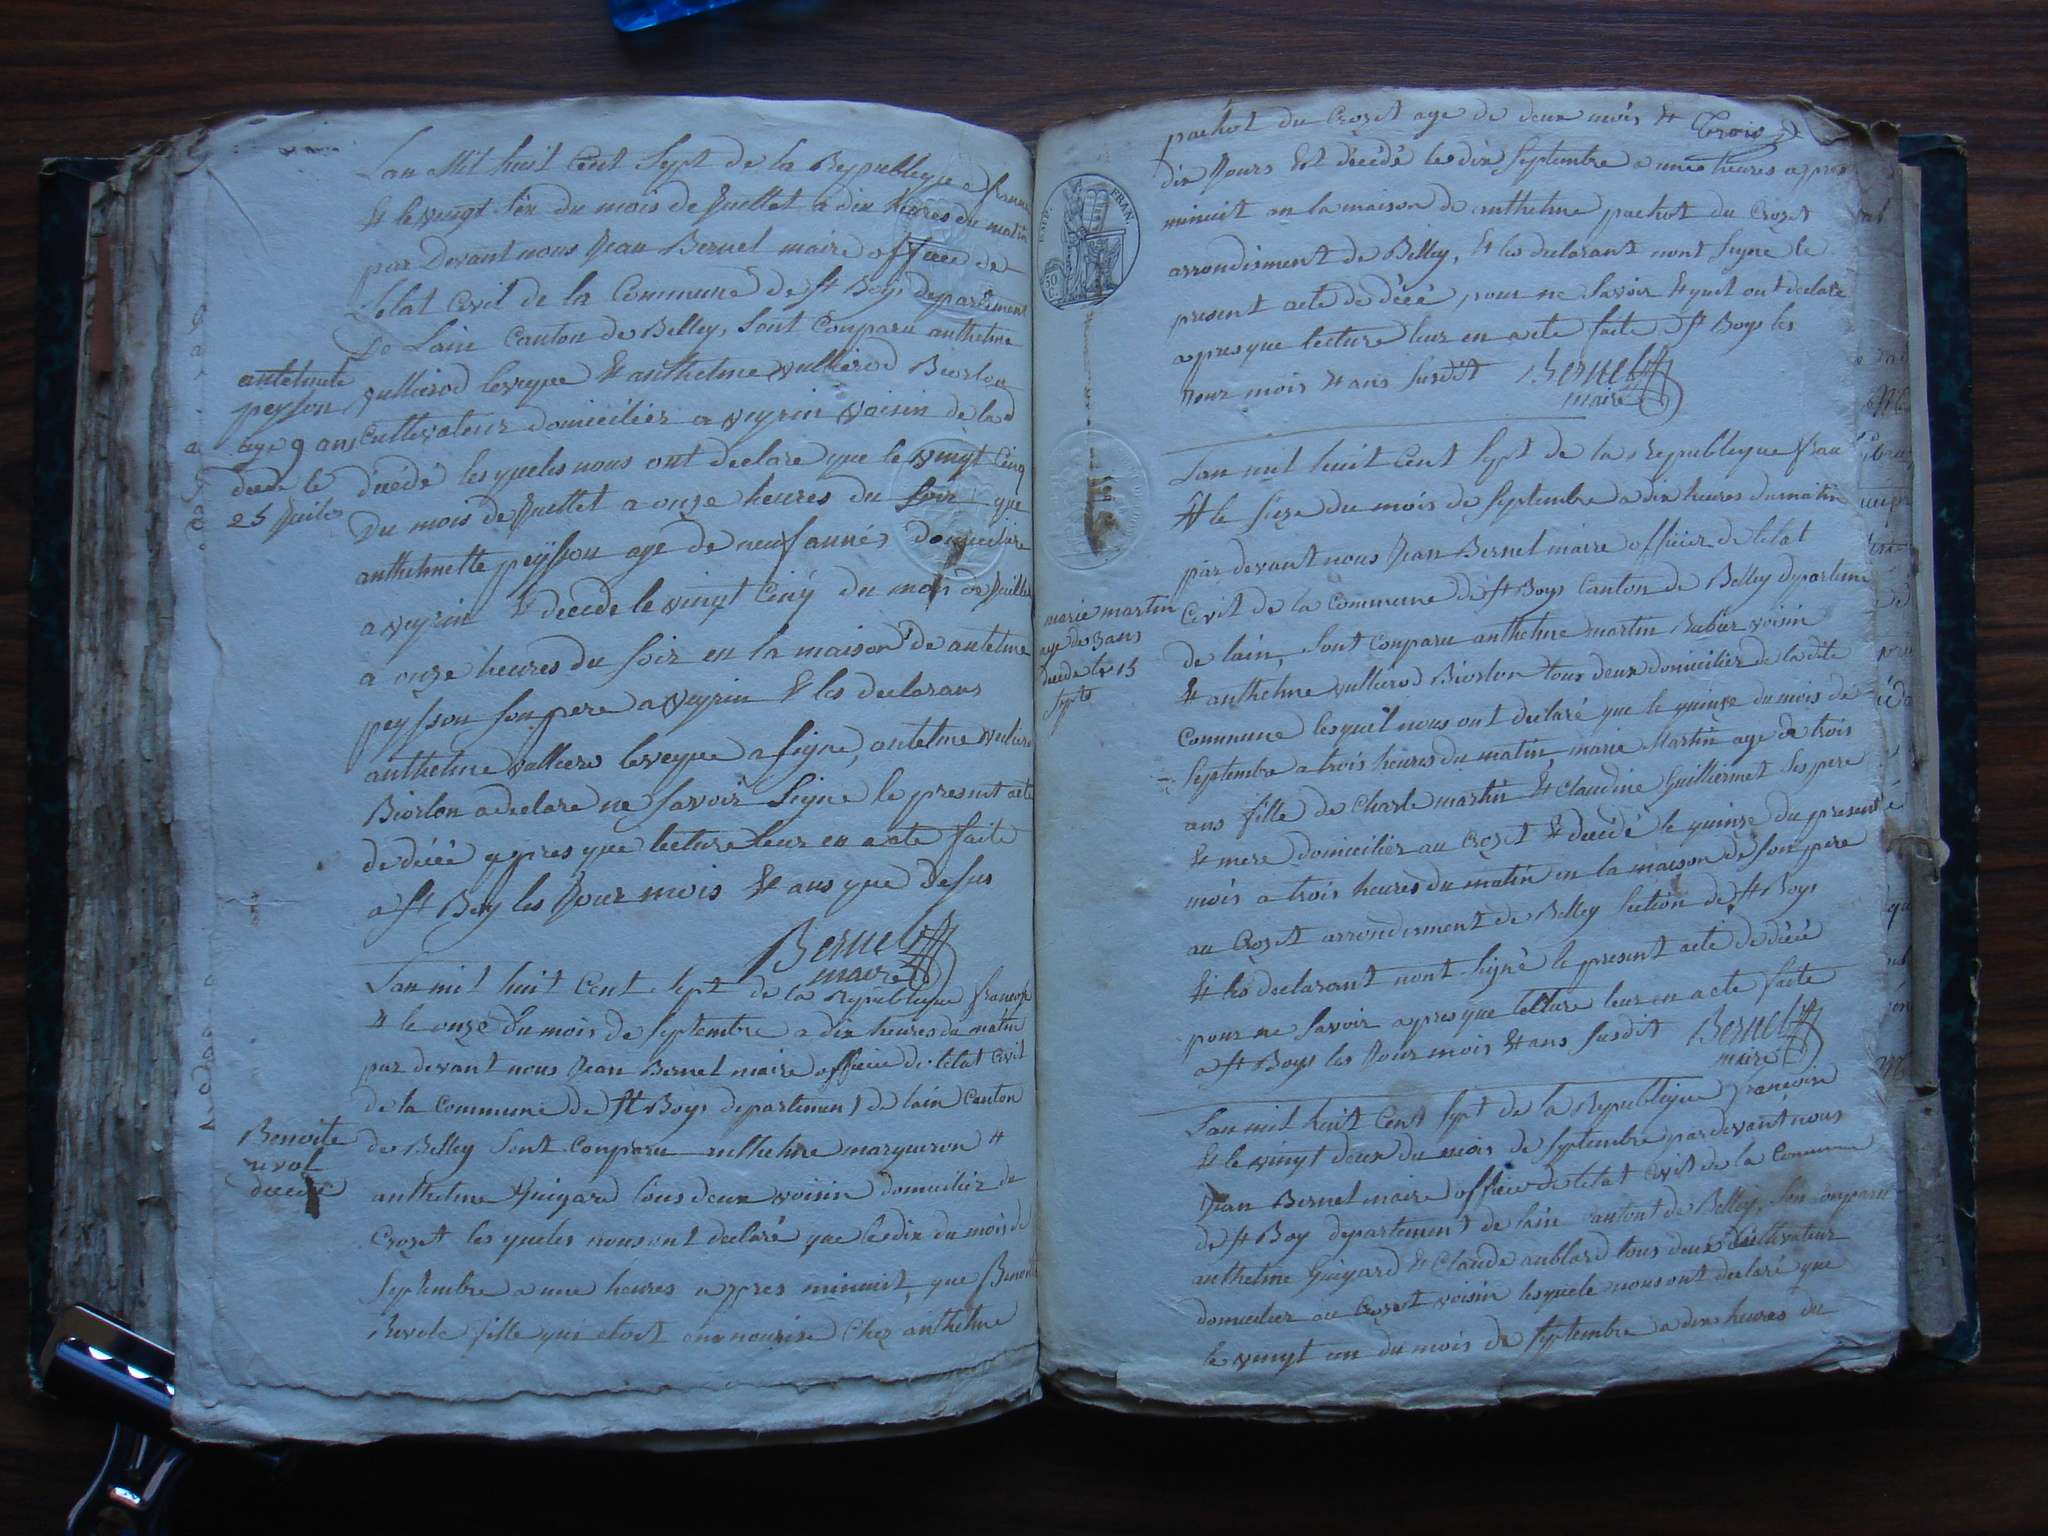 Lan Mil huit Cent Sept de la Republeque franc
& le vingt Six du mois de Juellet a dix heures du matin
par Devant nous Jean Bernel maire officie de
Letat Civil de la Commune de St Boys departement
De Lain Canton de Belley, Sont Conparu anthelme
vullierod leveque & anthelme vullierod Biorlon
Cultivateur domicilier a veyrin voisin de la d
décédé les queles nous ont declare que le vingt Cinq
Du mois de Juellet a onze heures du Soir que
anthelmette peysson age de neuf annés domiciliere
a veyrin & decede le vingt Cinq du mois de Juillet
a onze heures du Soir en la maison de antelme
peysson Son pere a veyrin & les declarans
anthelme vulliero leveque a Signe, antelme vuliero
Biorlon a declare ne Savoir Signe le present acte
de décé appres que lecture leur en a ete faite
a St Boy les Jour mois & ans que desus
Bernel
maire
antelmete
peysson
age 9 ans
decede le
25 Juilet
Lan mil huit Cent Sept de la Republeque francoise
& le onze du mois de Septembre a dix heures du matin
par devant nous Jean Bernel maire officier de letat Civil
de la Commune de St Boys departement de lain Canton
de Belley Sont Conparu anthelme marqueron &
anthelme Guigard tous deux voisin domicilier de
Crozet les queles nous ont declaré que le dix du mois de
Septembre a une heures appres minuit, que Benoite
Revole fille qui etoit en nourise Chez anthelme
Benoite
revol
decede
pachot du Crozet age de deux mois & trois
dix Jours Est décédé le dix Septembre a une heures apres
minuit en la maison de anthelme pachot du Crozet
arrondisment de Belley, & les declarant nont Signe le
present acte de décé pour ne Savoir & quil ont declare
apres que lecture leur en a ete faite a St Boys les
Jour mois & ans Susdit Bernel
maire
EMP. FRAN.
50
C.
Lan mil huit Cent Sept de la republeque fran
& le Seze du mois de Septembre a dix heures du matin
par devant nous Jean Bernel maire officier de letat
Civil de la Commune de St Boys Canton de Belley departeme
de lain, Sont Conparu anthelme martin voisin
& anthelme vullierod Biorlon tous deux domicilier de la dite
Commune lesquel nous ont declaré que le quinze du mois de
Septembre a trois heures du matin, marie Martin age de trois
ans fille de Charle martin & Claudine Guilliermet Ses pere
& mere domicilier au Crozet & decédé le quinze du present
mois a trois heures du matin en la maison de Son pere
au Crozet arrondisment de Belley Section de St Boys
& les declarant nont Signé le present acte de décé
pour ne Savoir apres que lecture leur en a ete faite
a St Boys les Jour mois & ans Susdit Bernel
maire
marie martin
age de 3 ans
decede le 15
Septe
Lan mil huit Cent Sept de la Republique francoise
& le vingt deux du mois de Septembre par devant nous
Jean Bernel maire officier de letat Civil de la Commune
de St Boy departement de lain Cantont de Belley, Son Conparu
anthelme Guigard & Claude aublard tous deux Cultivateur
domicilier au Crozet voisin les quele nous ont declaré que
le vingt un du mois de Septembre a dix heures du